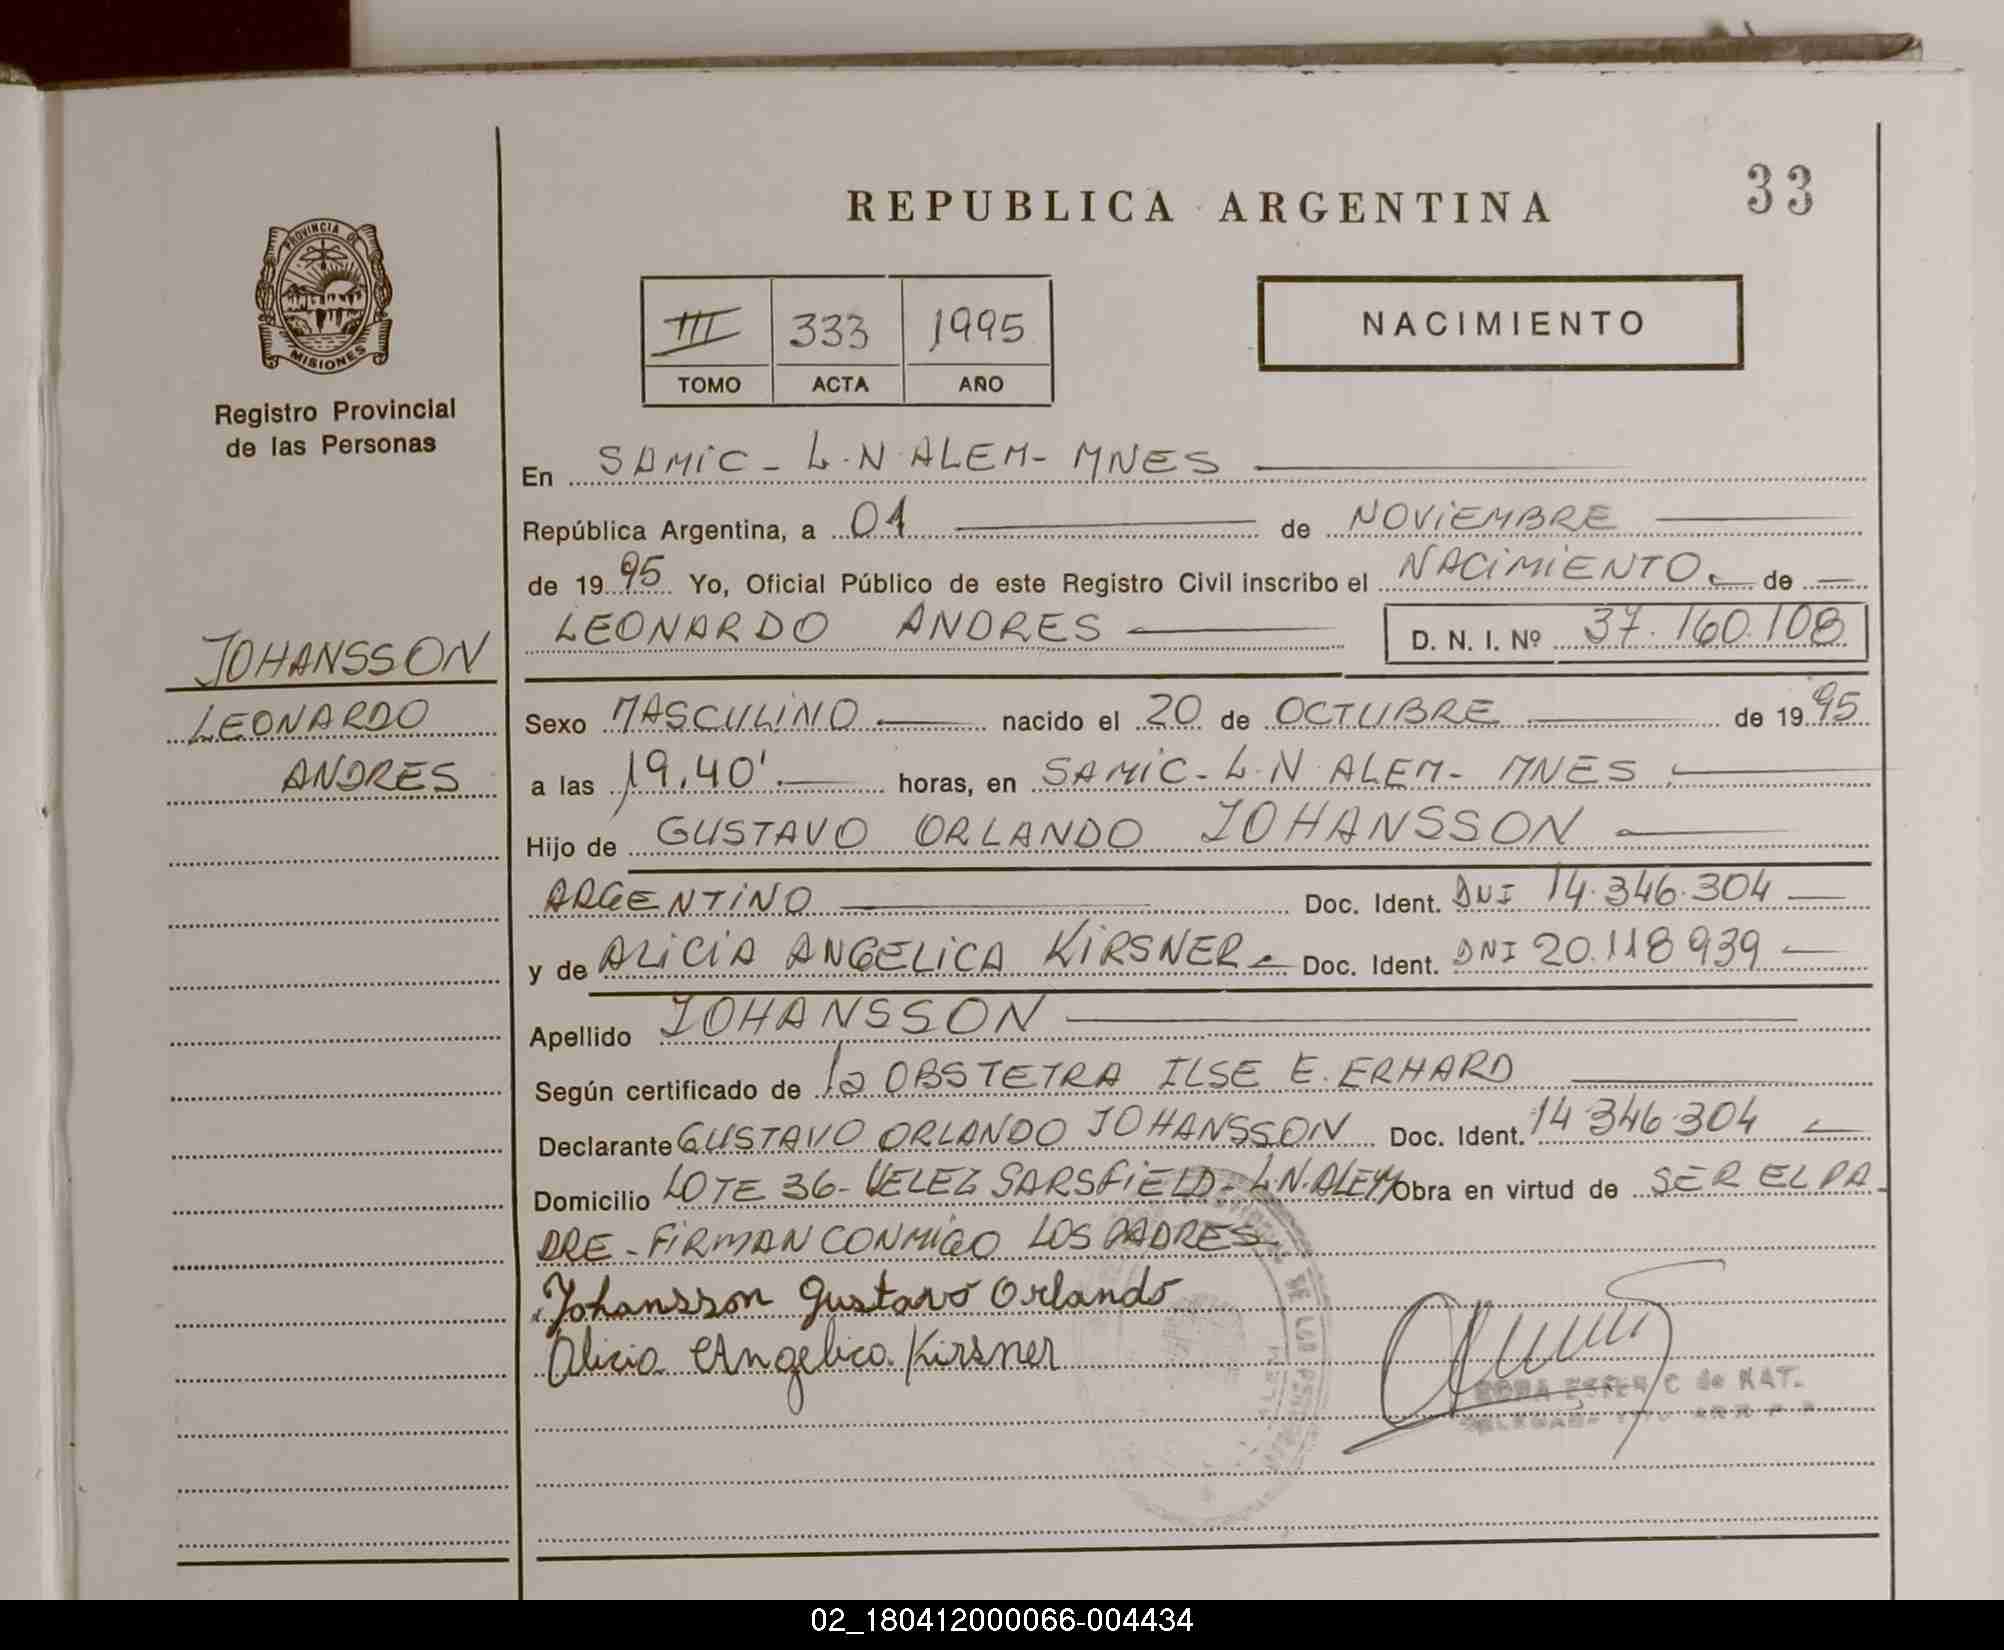 REPUBLICA ARGENTINA
33
PROVINCIA DE
MISIONES
Registro Provincial
de las Personas
III 333 1995
TOMO ACTA AÑO
NACIMIENTO
En SAMIC - L.N. ALEM - MNES
República Argentina, a 01 de NOVIEMBRE
de 1995 Yo, Oficial Público de este Registro Civil inscribo el NACIMIENTO. de
LEONARDO ANDRES D. N. I. Nº 37.160.108
JOHANSSON
LEONARDO
ANDRES
Sexo MASCULINO nacido el 20 de OCTUBRE de 1995
a las 19,40'. horas, en SAMIC - L.N. ALEM - MNES.
Hijo de GUSTAVO ORLANDO JOHANSSON
ARGENTINO Doc. Ident. DNI 14.346.304
y de ALICIA ANGELICA KIRSNER. Doc. Ident. DNI 20.118939
Apellido JOHANSSON
Según certificado de la OBSTETRA ILSE E. ERHARD
Declarante GUSTAVO ORLANDO JOHANSSON Doc. Ident. 14 346.304
Domicilio LOTE 36 - VELEZ SARSFIELD - L.N. ALEM Obra en virtud de SER EL PA-
DRE - FIRMAN CONMIGO LOS PADRES
Johansson Gustavo Orlando
Alicia Angelica Kirsner
DE LAS
de NAT.
02_180412000066-004434